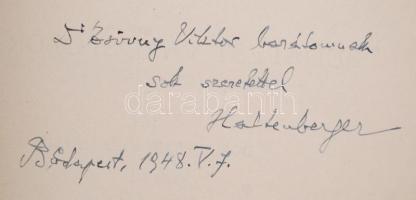 Dr Zsivny Viktor barátomnak
sok szeretettel
Haltenberger
Budapest, 1948. V. 7.
darabanth